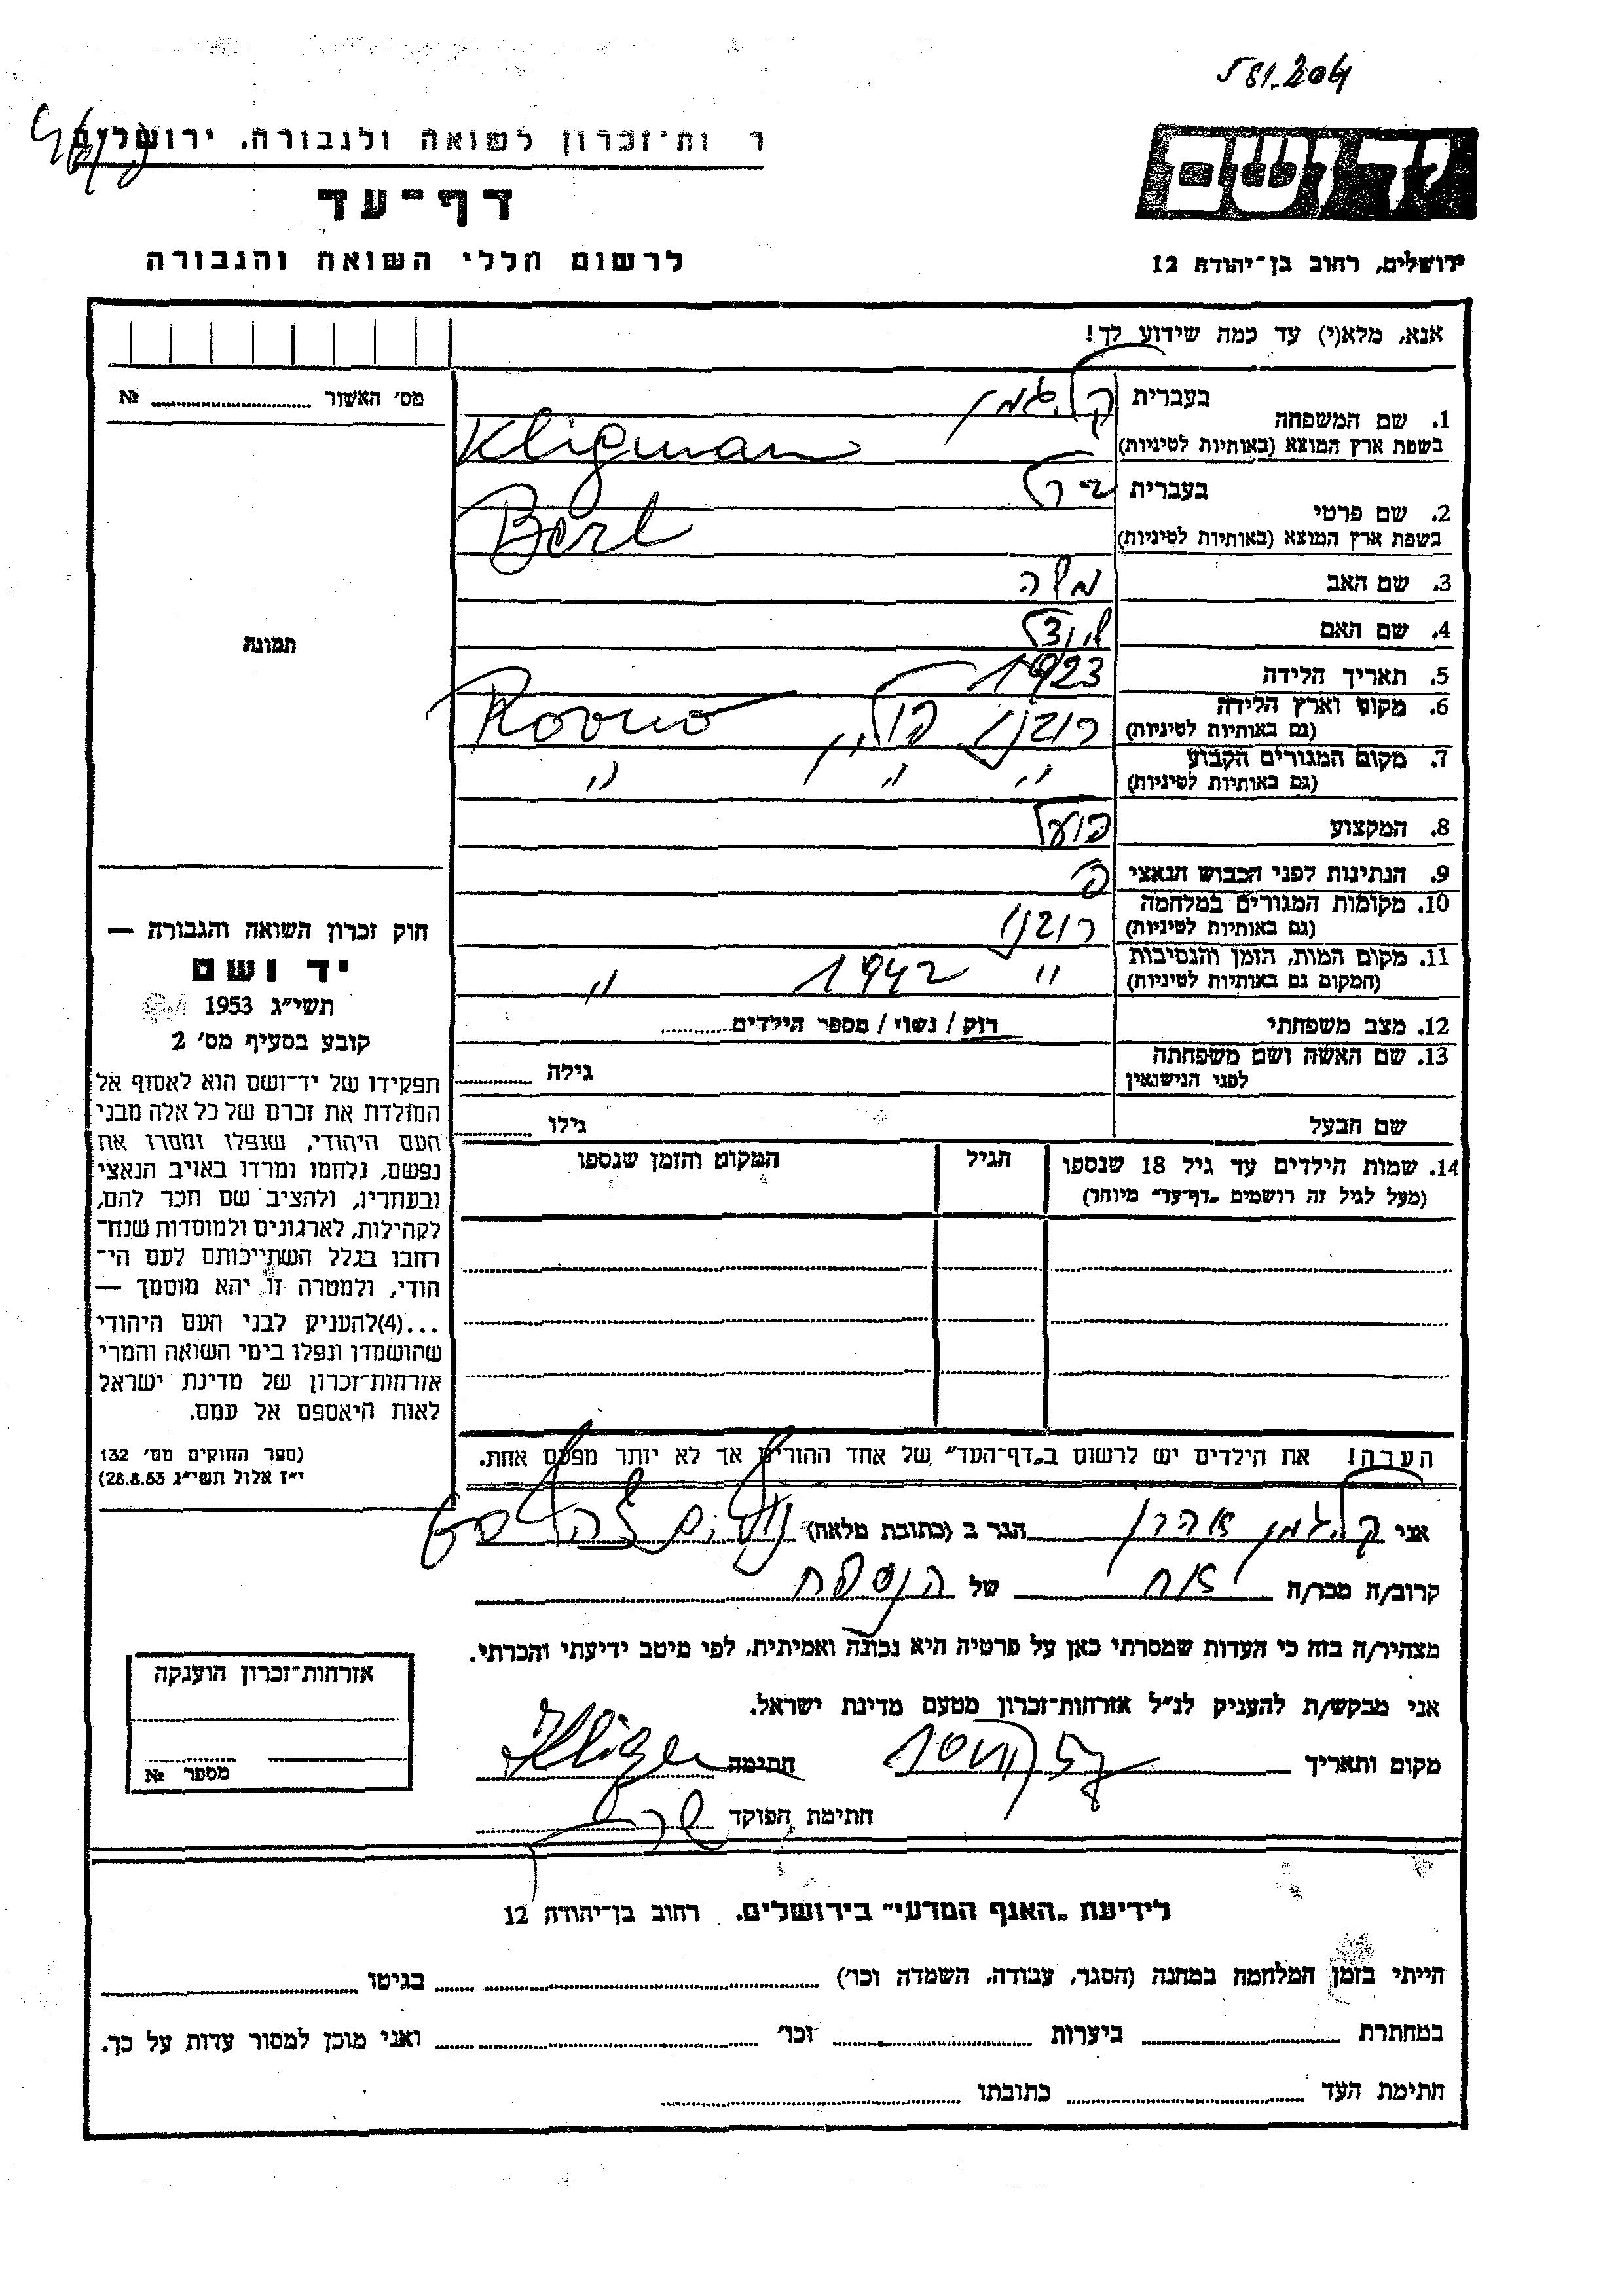 581.204
ו ות־זכרון לשואה ולגבורה, ירושלים
דף־עד
לרשום חללי השואה והגבורה
יד ושם
ירושלים, רחוב בן־יהודה 12
אנא, מלא(י) עד כמה שידוע לך!
מס׳ האשור №
1. שם המשפחה בעברית קליגמן
בשפת ארץ המוצא (באותיות לטיניות) Kligman
2. שם פרטי בעברית ברל
בשפת ארץ המוצא (באותיות לטיניות) Berl
3. שם האב משה
4. שם האם
5. תאריך הלידה 1923
6. מקום וארץ הלידה (גם באותיות לטיניות) רובנו פולין Rovno
7. מקום המגורים הקבוע (גם באותיות לטיניות) " " "
8. המקצוע פועל
9. הנתינות לפני הכבוש הנאצי פ
10. מקומות המגורים במלחמה (גם באותיות לטיניות) רובנו
11. מקום המות, הזמן והנסיבות (המקום גם באותיות לטיניות) " 1942 "
12. מצב משפחתי רוק / נשוי / מספר הילדים
13. שם האשה ושם משפחתה לפני הנישואין גילה
שם הבעל גילו
14. שמות הילדים עד גיל 18 שנספו (מעל לגיל זה רושמים „דף־עד״ מיוחד) הגיל המקום והזמן שנספו
תמונה
חוק זכרון השואה והגבורה —
יד ושם
תשי״ג 1953
קובע בסעיף מס׳ 2
תפקידו של יד־ושם הוא לאסוף אל
המולדת את זכרם של כל אלה מבני
העם היהודי, שנפלו ומסרו את
נפשם, נלחמו ומרדו באויב הנאצי
ובעוזריו, ולהציב שם וזכר להם,
לקהילות, לארגונים ולמוסדות שנח־
רחבו בגלל השתייכותם לעם הי־
הודי, ולמטרה זו יהא מוסמך —
...(4)להעניק לבני העם היהודי
שהושמדו ונפלו בימי השואה והמרי
אזרחות־זכרון של מדינת ישראל
לאות היאספם אל עמם.
(ספר החוקים מס׳ 132
י״ז אלול תשי״ג 28.8.53)
הערה! את הילדים יש לרשום ב„דף־העד״ של אחד ההורים אך לא יותר מפעם אחת.
אני קליגמן אהרן הגר ב (כתובת מלאה)
קרוב/ה מכר/ה אח של הנספה
מצהיר/ה בזה כי העדות שמסרתי כאן על פרטיה היא נכונה ואמיתית, לפי מיטב ידיעתי והכרתי.
אני מבקש/ת להעניק לנ״ל אזרחות־זכרון מטעם מדינת ישראל.
מקום ותאריך חתימה
חתימת הפוקד
אזרחות־זכרון הוענקה
מספר №
לידיעת „האגף המדעי״ בירושלים. רחוב בן־יהודה 12
הייתי בזמן המלחמה במחנה (הסגר, עבודה, השמדה וכו׳) בגיטו
במחתרת ביערות וכו׳ ואני מוכן למסור עדות על כך.
חתימת העד כתובתו